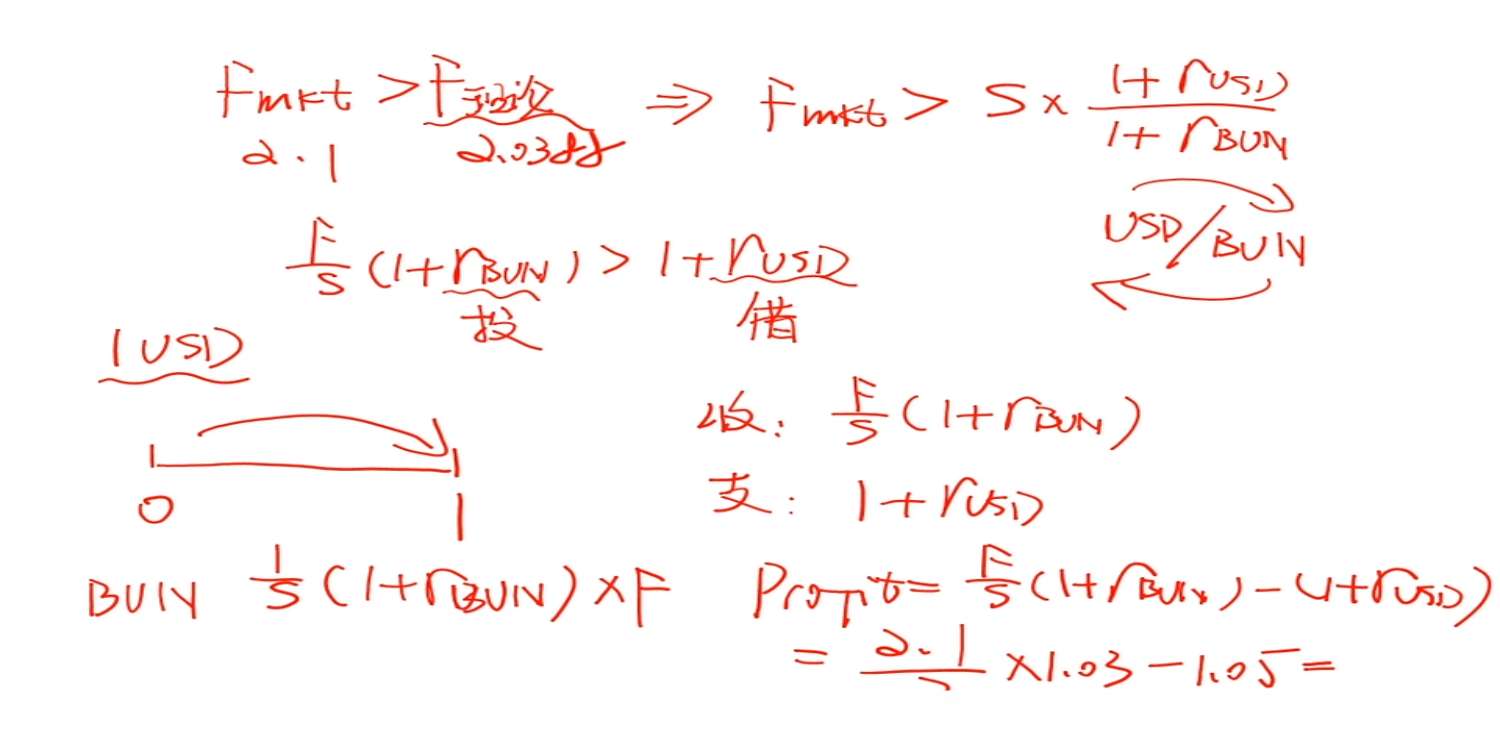 Fmkt > F理论 ⇒ Fmkt > S × (1 + rUSD) / (1 + rBUN)
2.1 2.0388
USD/BUN
F/S (1 + rBUN) > 1 + rUSD
投 借
1 USD
收: F/S (1 + rBUN)
0 1
支: 1 + rUSD
BUN 1/S (1 + rBUN) × F
Profit = F/S (1 + rBUN) - (1 + rUSD)
= 2.1/2 × 1.03 - 1.05 =